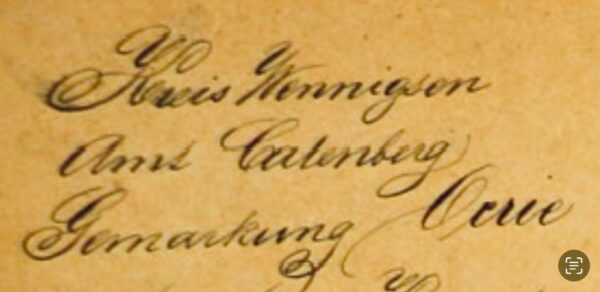 Kreis Wennigsen
Amt Calenberg
Gemarkung Oerie